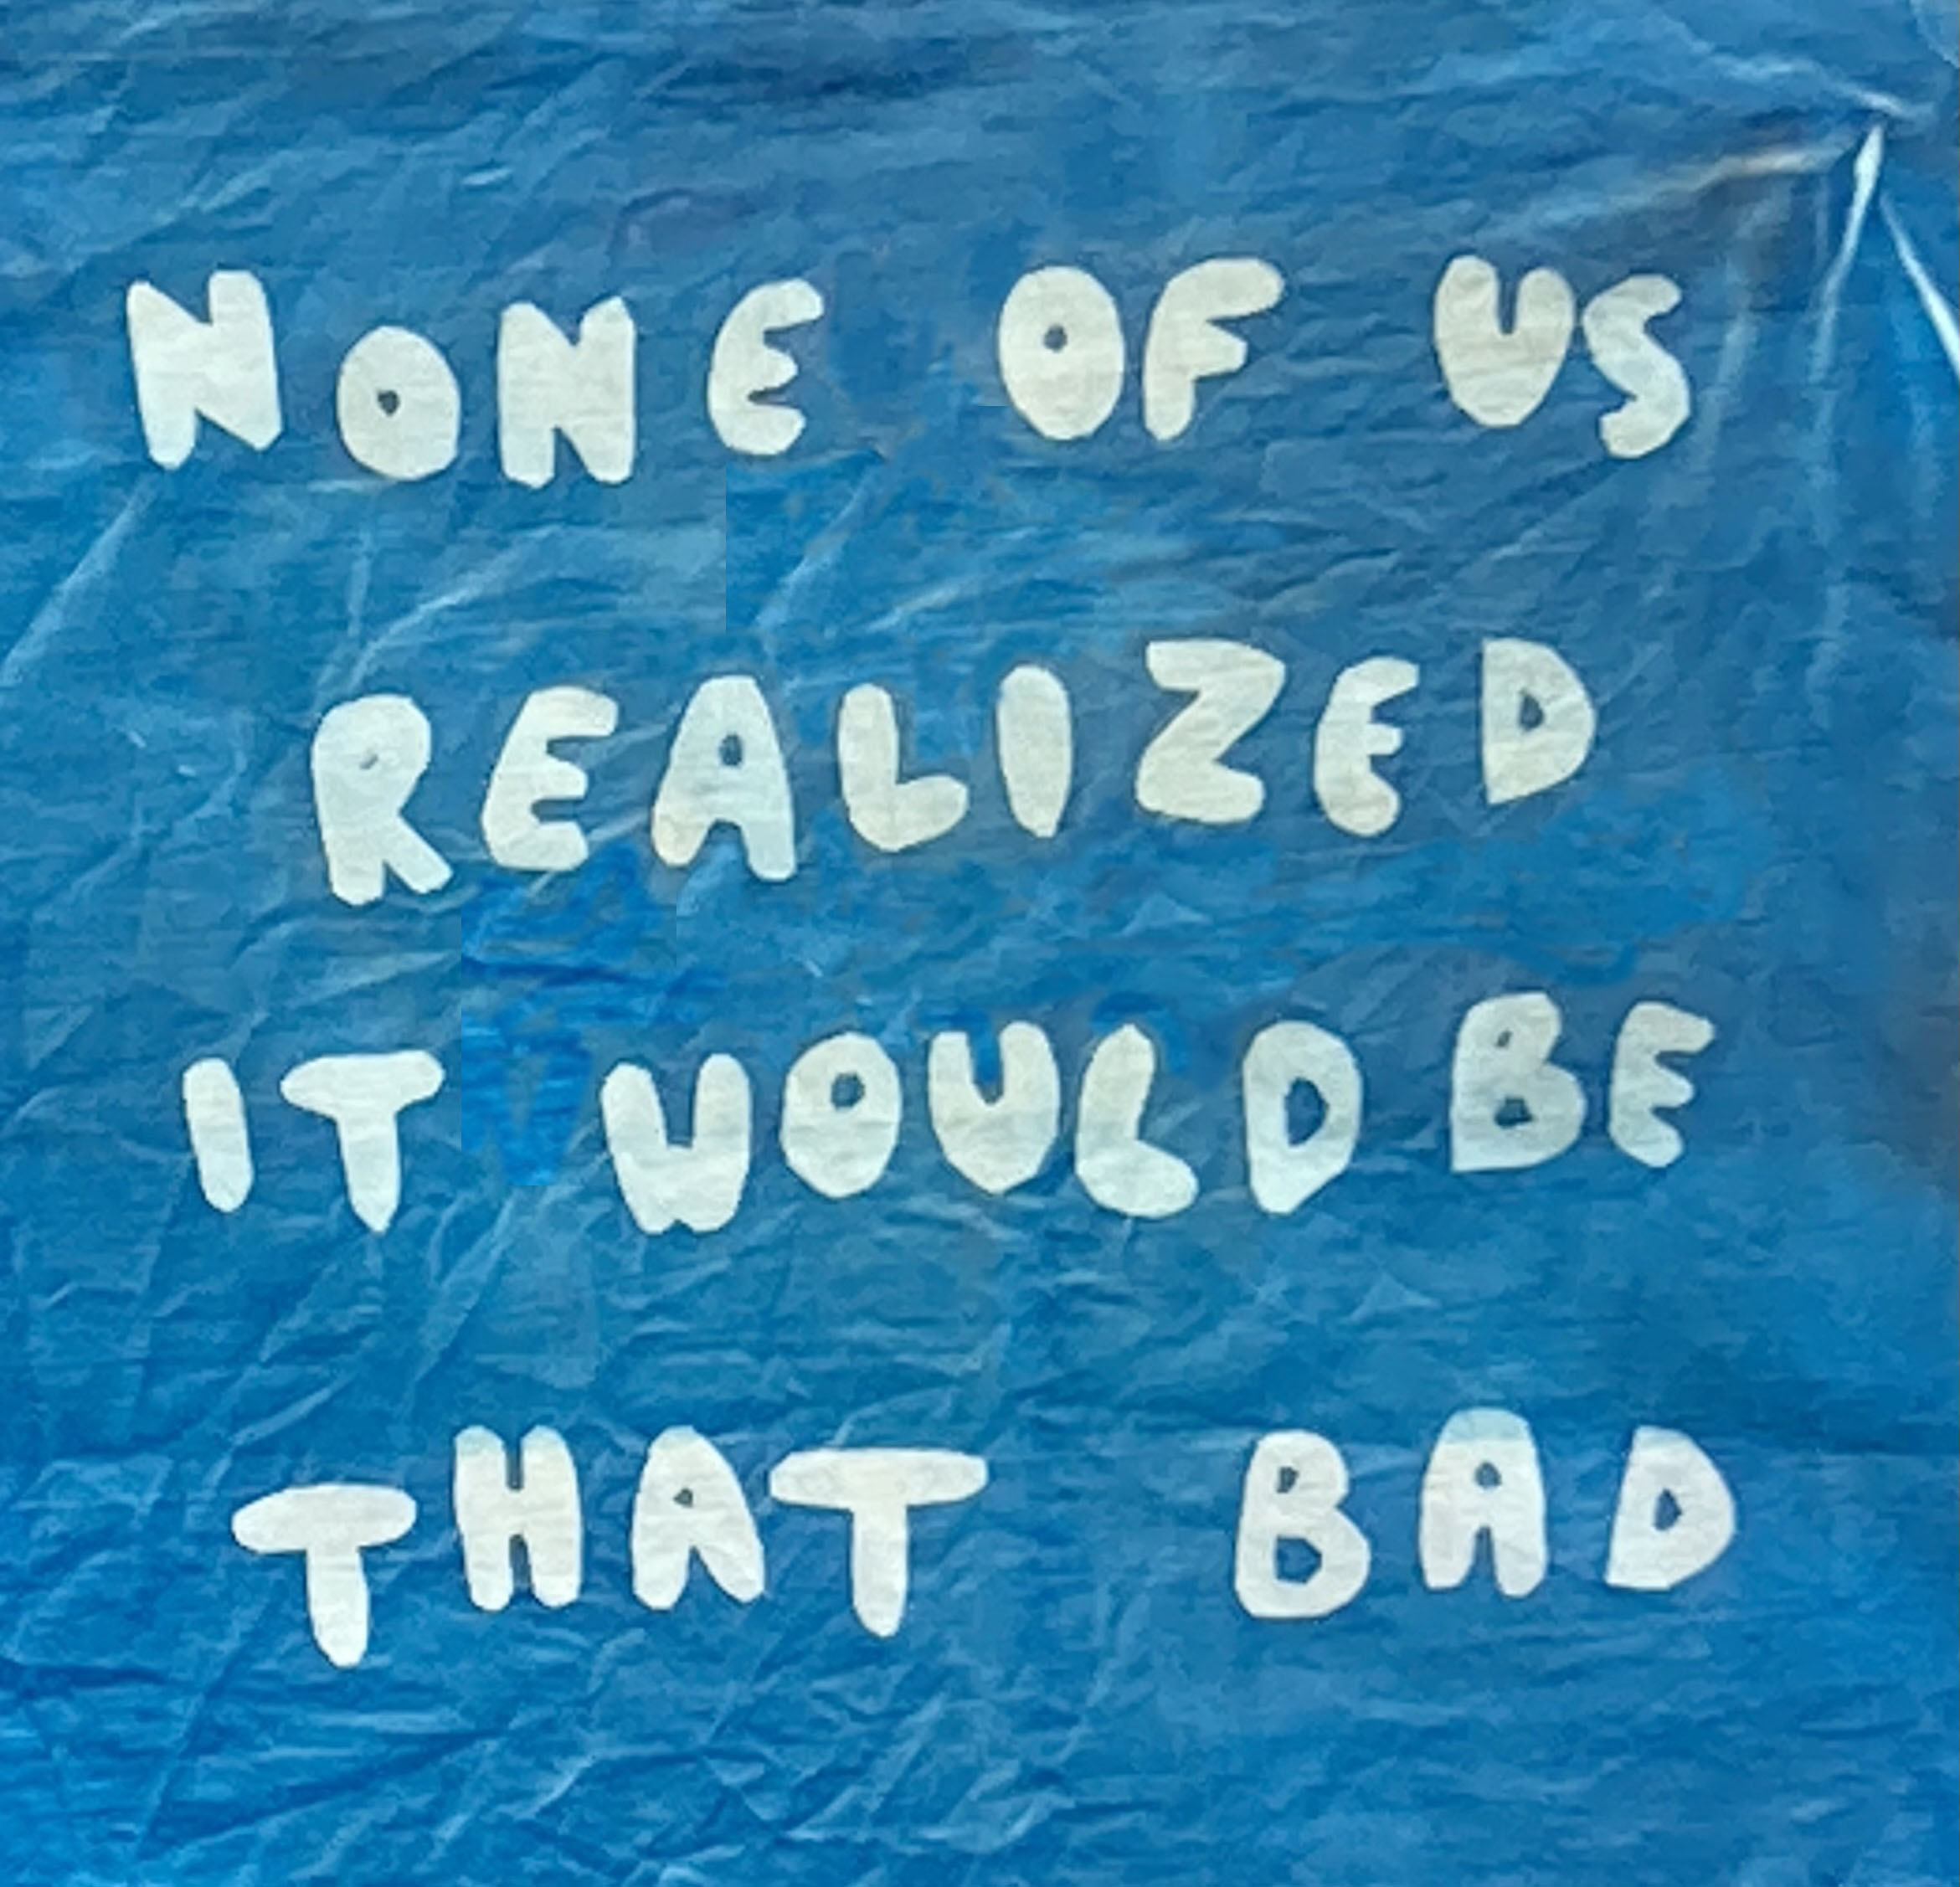 NONE OF US
REALIZED
IT WOULD BE
THAT BAD